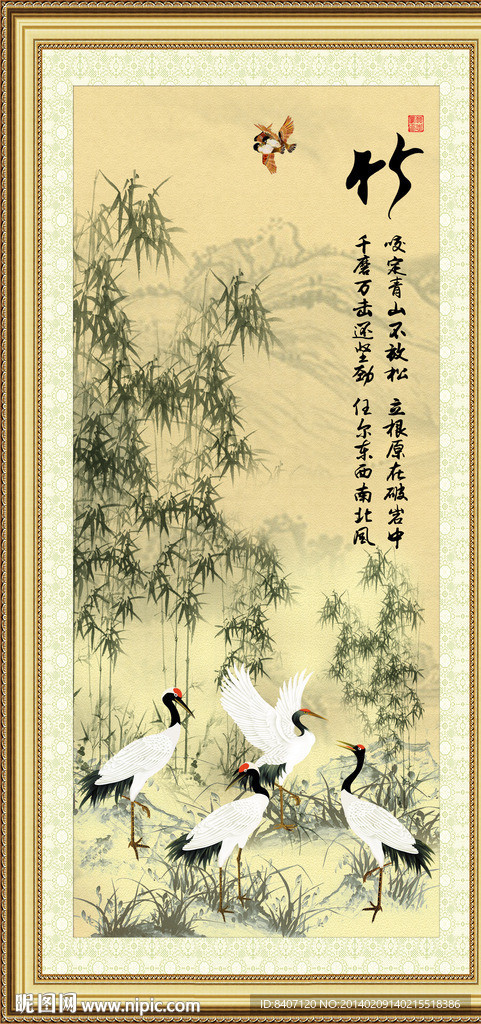 竹
咬定青山不放松 立根原在破岩中
千磨万击还坚劲 任尔东西南北风
昵图网 www.nipic.com
ID:8407120 NO:20140209140215518386